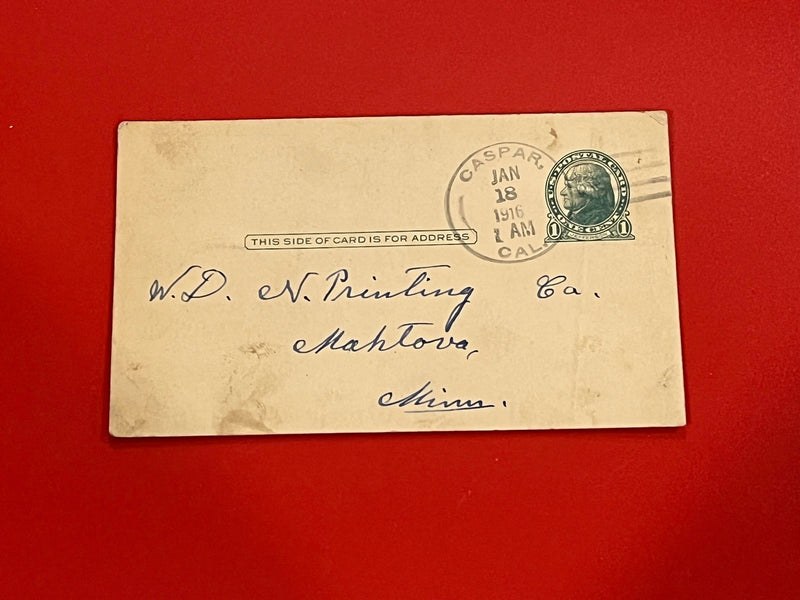 CASPAR,
JAN
18
1916
1 AM
CAL.
U.S. POSTAL CARD
ONE CENT
1 1
THIS SIDE OF CARD IS FOR ADDRESS
W. D. N. Printing Co.
Mahtova,
Minn.